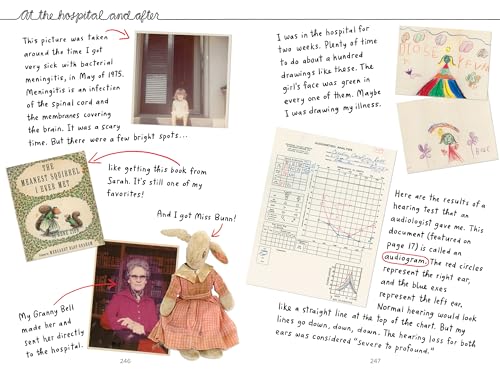 At the hospital and after
This picture was taken
around the time I got
very sick with bacterial
meningitis, in May of 1975.
Meningitis is an infection
of the spinal cord and
the membranes covering
the brain. It was a scary
time. But there were a few bright spots...
THE
MEANEST SQUIRREL
I EVER MET
MARGARET BLOY GRAHAM
like getting this book from
Sarah. It's still one of my
favorites!
And I got Miss Bunn!
My Granny Bell
made her and
sent her directly
to the hospital.
246
I was in the hospital for
two weeks. Plenty of time
to do about a hundred
drawings like these. The
girl's face was green in
every one of them. Maybe
I was drawing my illness.
AUDIOMETRIC ANALYSIS
Here are the results of a
hearing test that an
audiologist gave me. This
document (featured on
page 17) is called an
audiogram. The red circles
represent the right ear,
and the blue exes
represent the left ear.
Normal hearing would look
like a straight line at the top of the chart. But my
lines go down, down, down. The hearing loss for both
ears was considered "severe to profound."
247